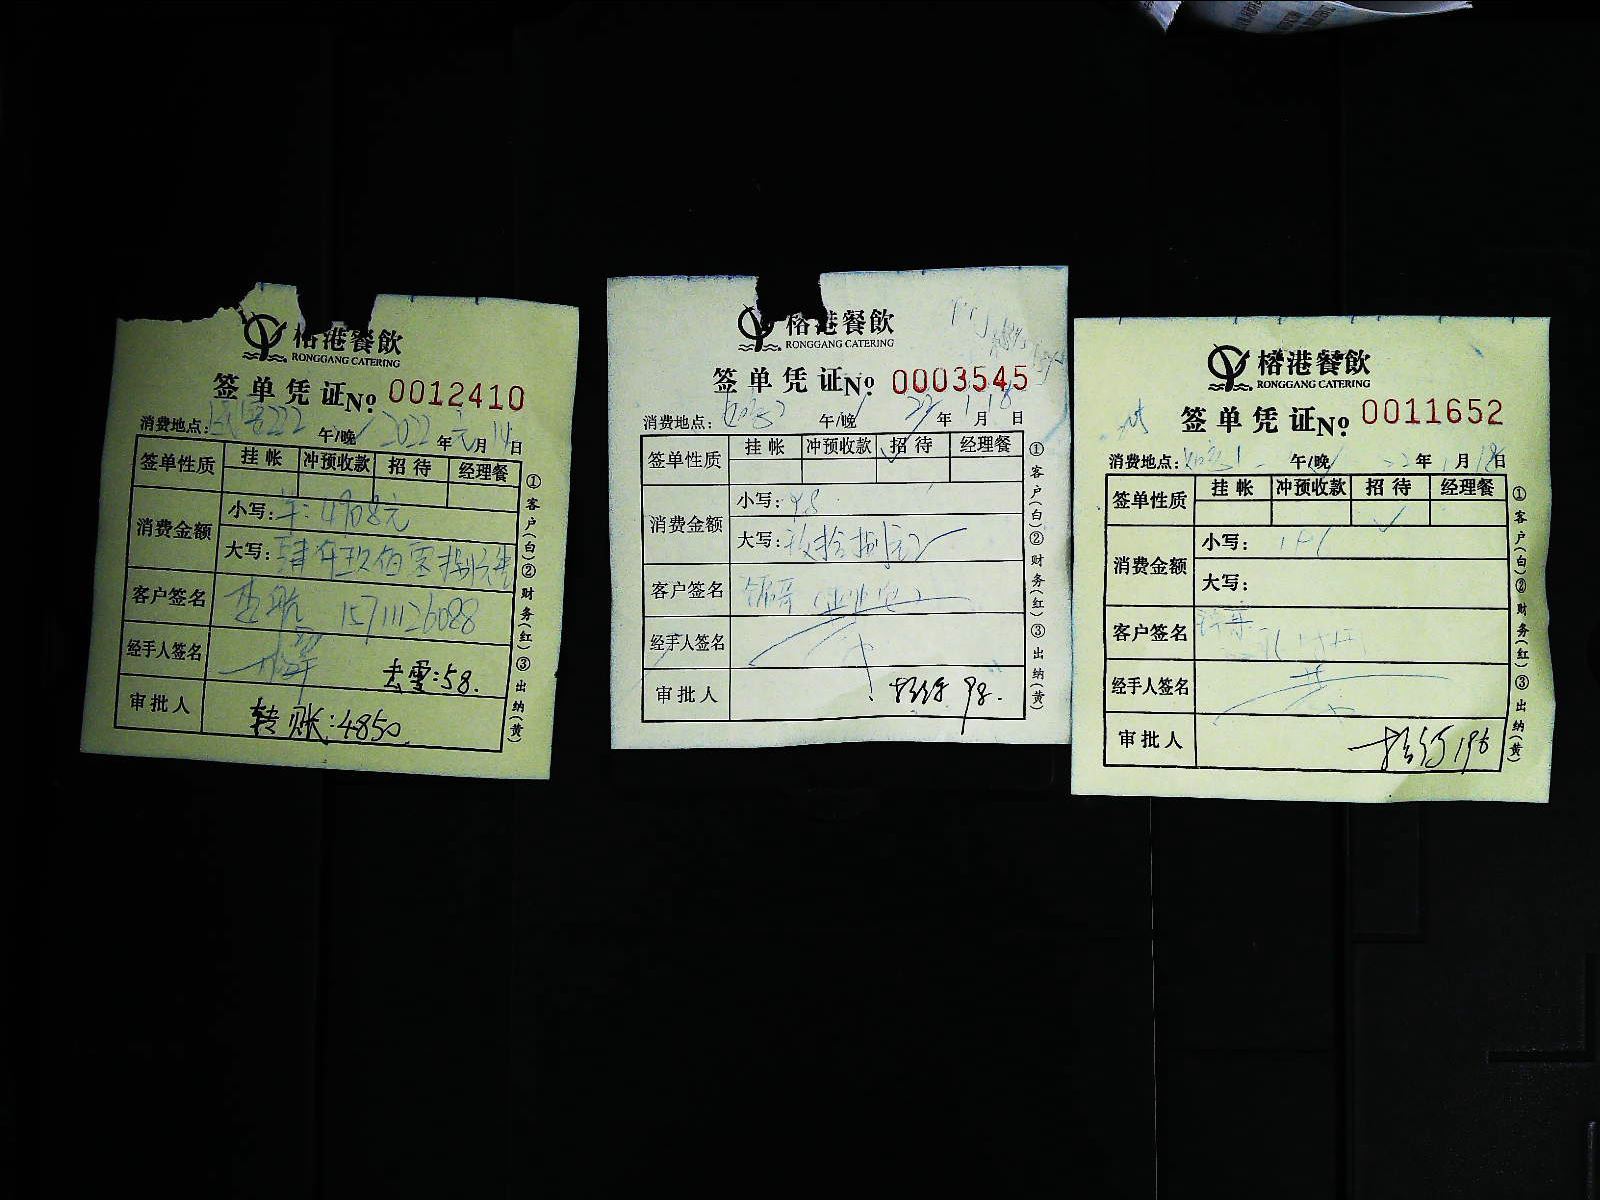 榕港餐飲
RONGGANG CATERING
签单凭证No 0012410
消费地点: 222 午/晚 2022年元月14日
签单性质 挂帐 冲预收款 招待 经理餐
消费金额
小写: 4908元
大写: 肆仟玖佰零捌元
客户签名 15711126088
经手人签名
去零:58.
审批人 转账:4850
①客户(白)②财务(红)③出纳(黄)
榕港餐飲
RONGGANG CATERING
签单凭证No 0003545
消费地点: 午/晚 22年1月18日
签单性质 挂帐 冲预收款 招待 经理餐
消费金额
小写: 98
大写: 玖拾捌元
客户签名
经手人签名
审批人 招待 98.
①客户(白)②财务(红)③出纳(黄)
榕港餐飲
RONGGANG CATERING
签单凭证No 0011652
消费地点: 午/晚 22年1月18日
签单性质 挂帐 冲预收款 招待 经理餐
消费金额
小写:
大写:
客户签名
经手人签名
审批人 招待196
①客户(白)②财务(红)③出纳(黄)